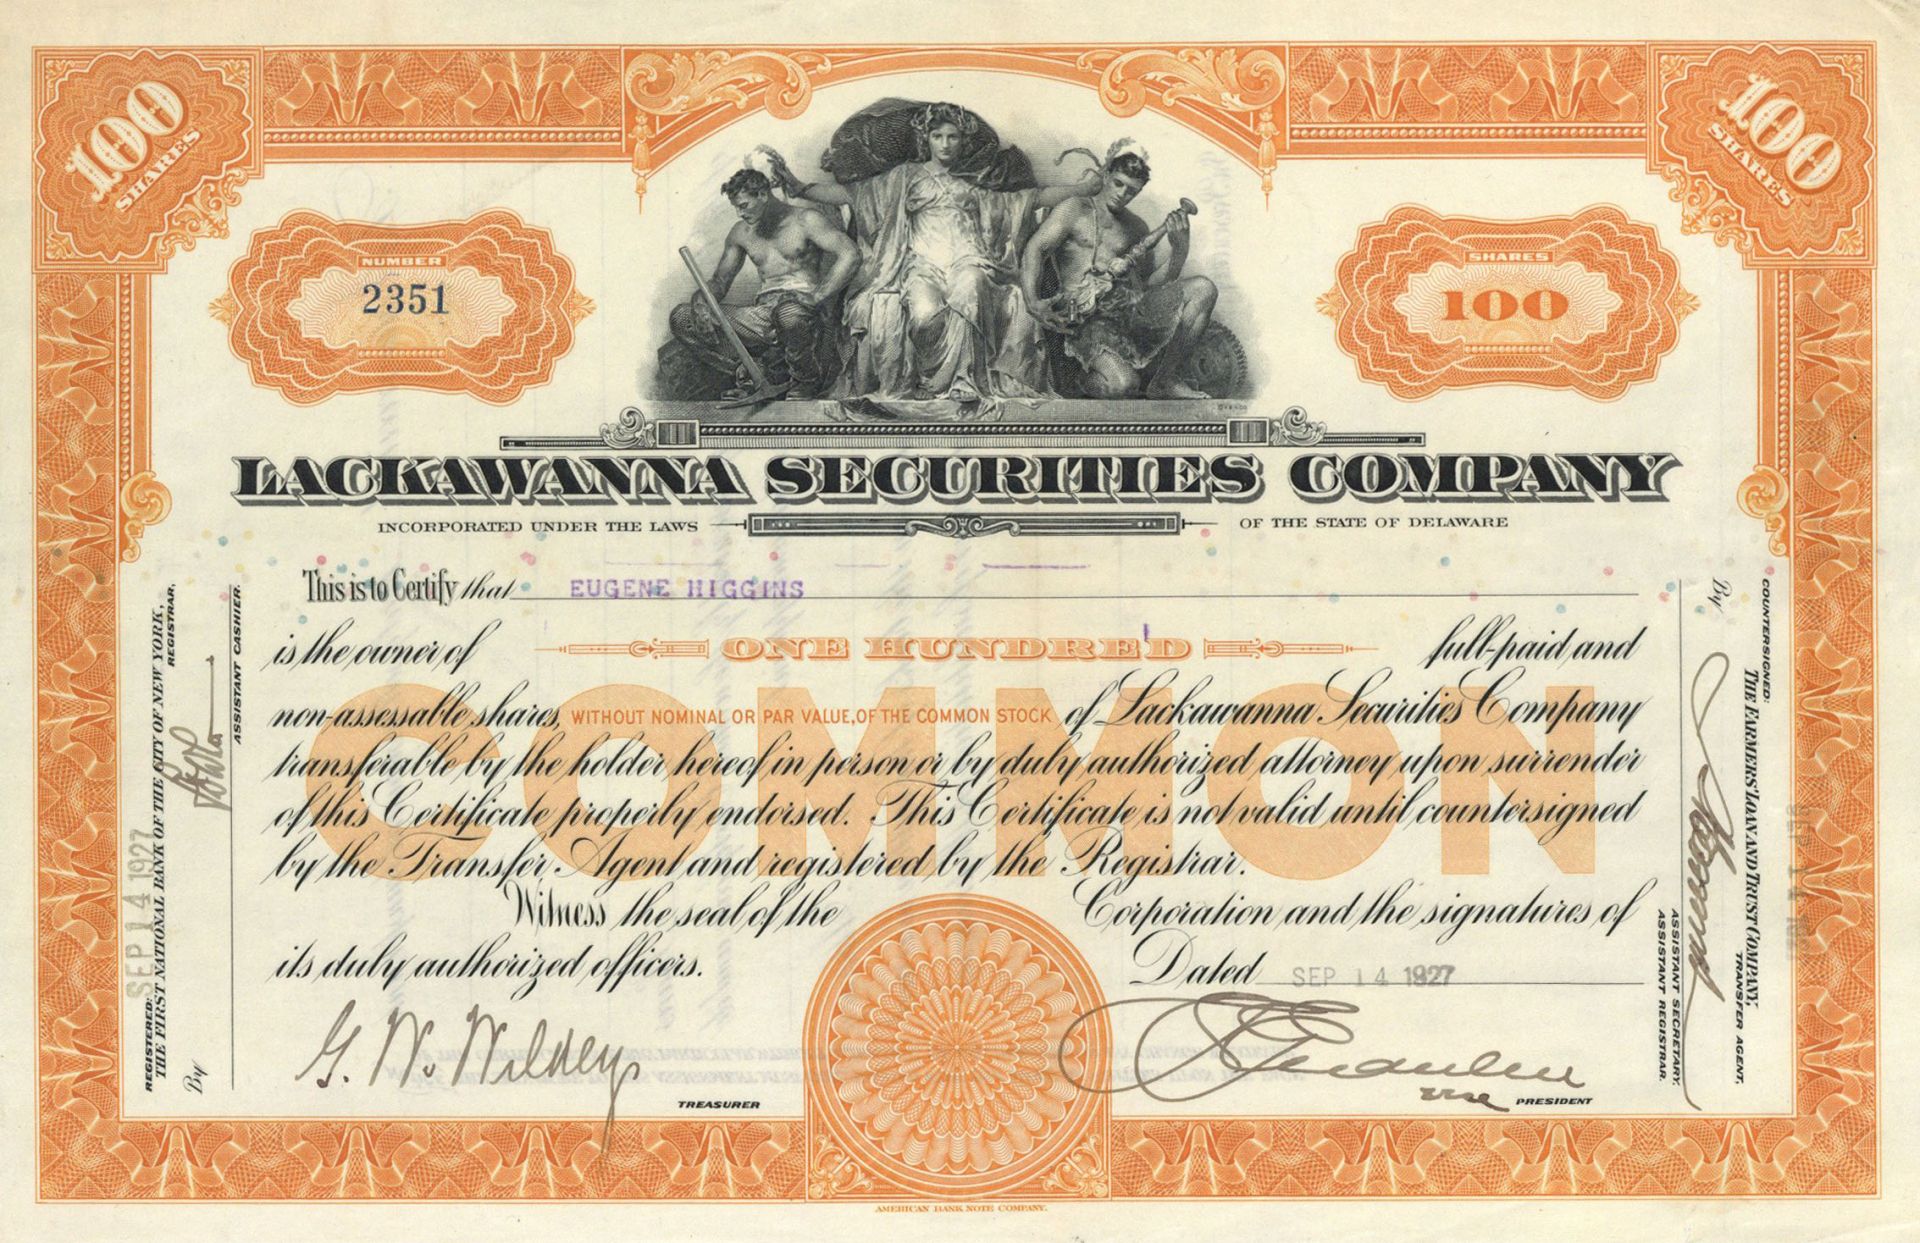 100
SHARES
100
SHARES
NUMBER
2351
SHARES
100
LACKAWANNA SECURITIES COMPANY
INCORPORATED UNDER THE LAWS OF THE STATE OF DELAWARE
This is to Certify that EUGENE HIGGINS
is the owner of ONE HUNDRED full-paid and
non-assessable shares, WITHOUT NOMINAL OR PAR VALUE, OF THE COMMON STOCK of Lackawanna Securities Company
transferable by the holder hereof in person or by duly authorized attorney upon surrender
of this Certificate properly endorsed. This Certificate is not valid until countersigned
by the Transfer Agent and registered by the Registrar.
COMMON
Witness the seal of the Corporation and the signatures of
its duly authorized officers. Dated SEP 14 1927
G. W. Wildey
TREASURER
vice PRESIDENT
AMERICAN BANK NOTE COMPANY.
REGISTERED:
THE FIRST NATIONAL BANK OF THE CITY OF NEW YORK,
REGISTRAR.
SEP 14 1927
By
ASSISTANT CASHIER.
COUNTERSIGNED:
THE FARMERS' LOAN AND TRUST COMPANY,
TRANSFER AGENT,
By
ASSISTANT SECRETARY.
ASSISTANT REGISTRAR.